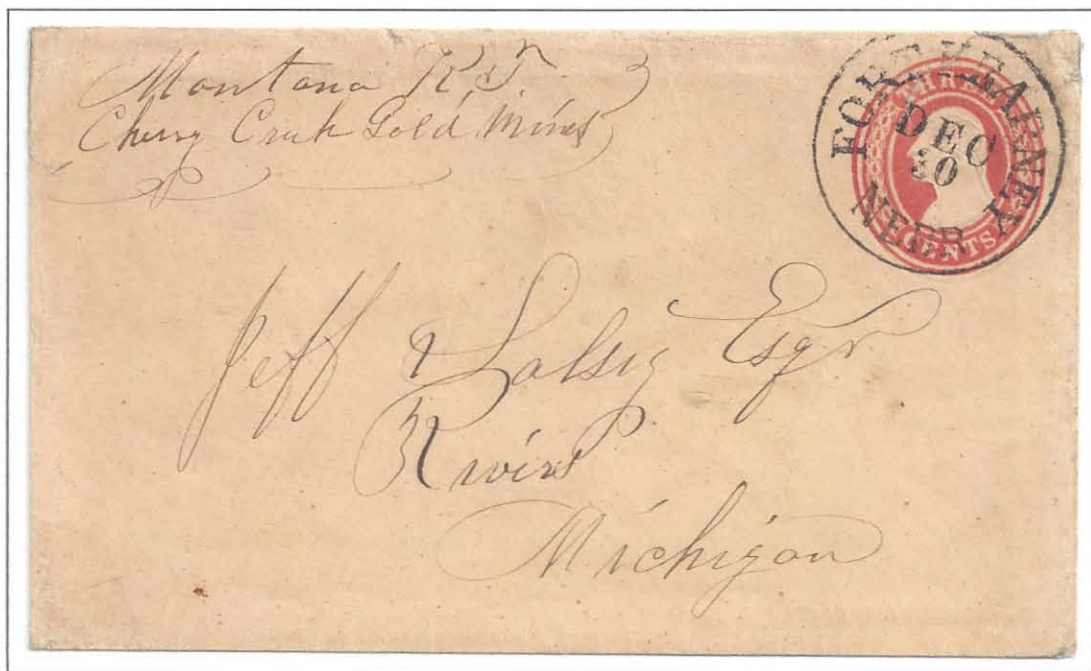 Montana K.T.
Cherry Creek Gold Mines
FORT KEARNEY
DEC
30
NEBR
THREE
CENTS
Jeff Salsig Esqr
Rivers
Michigan